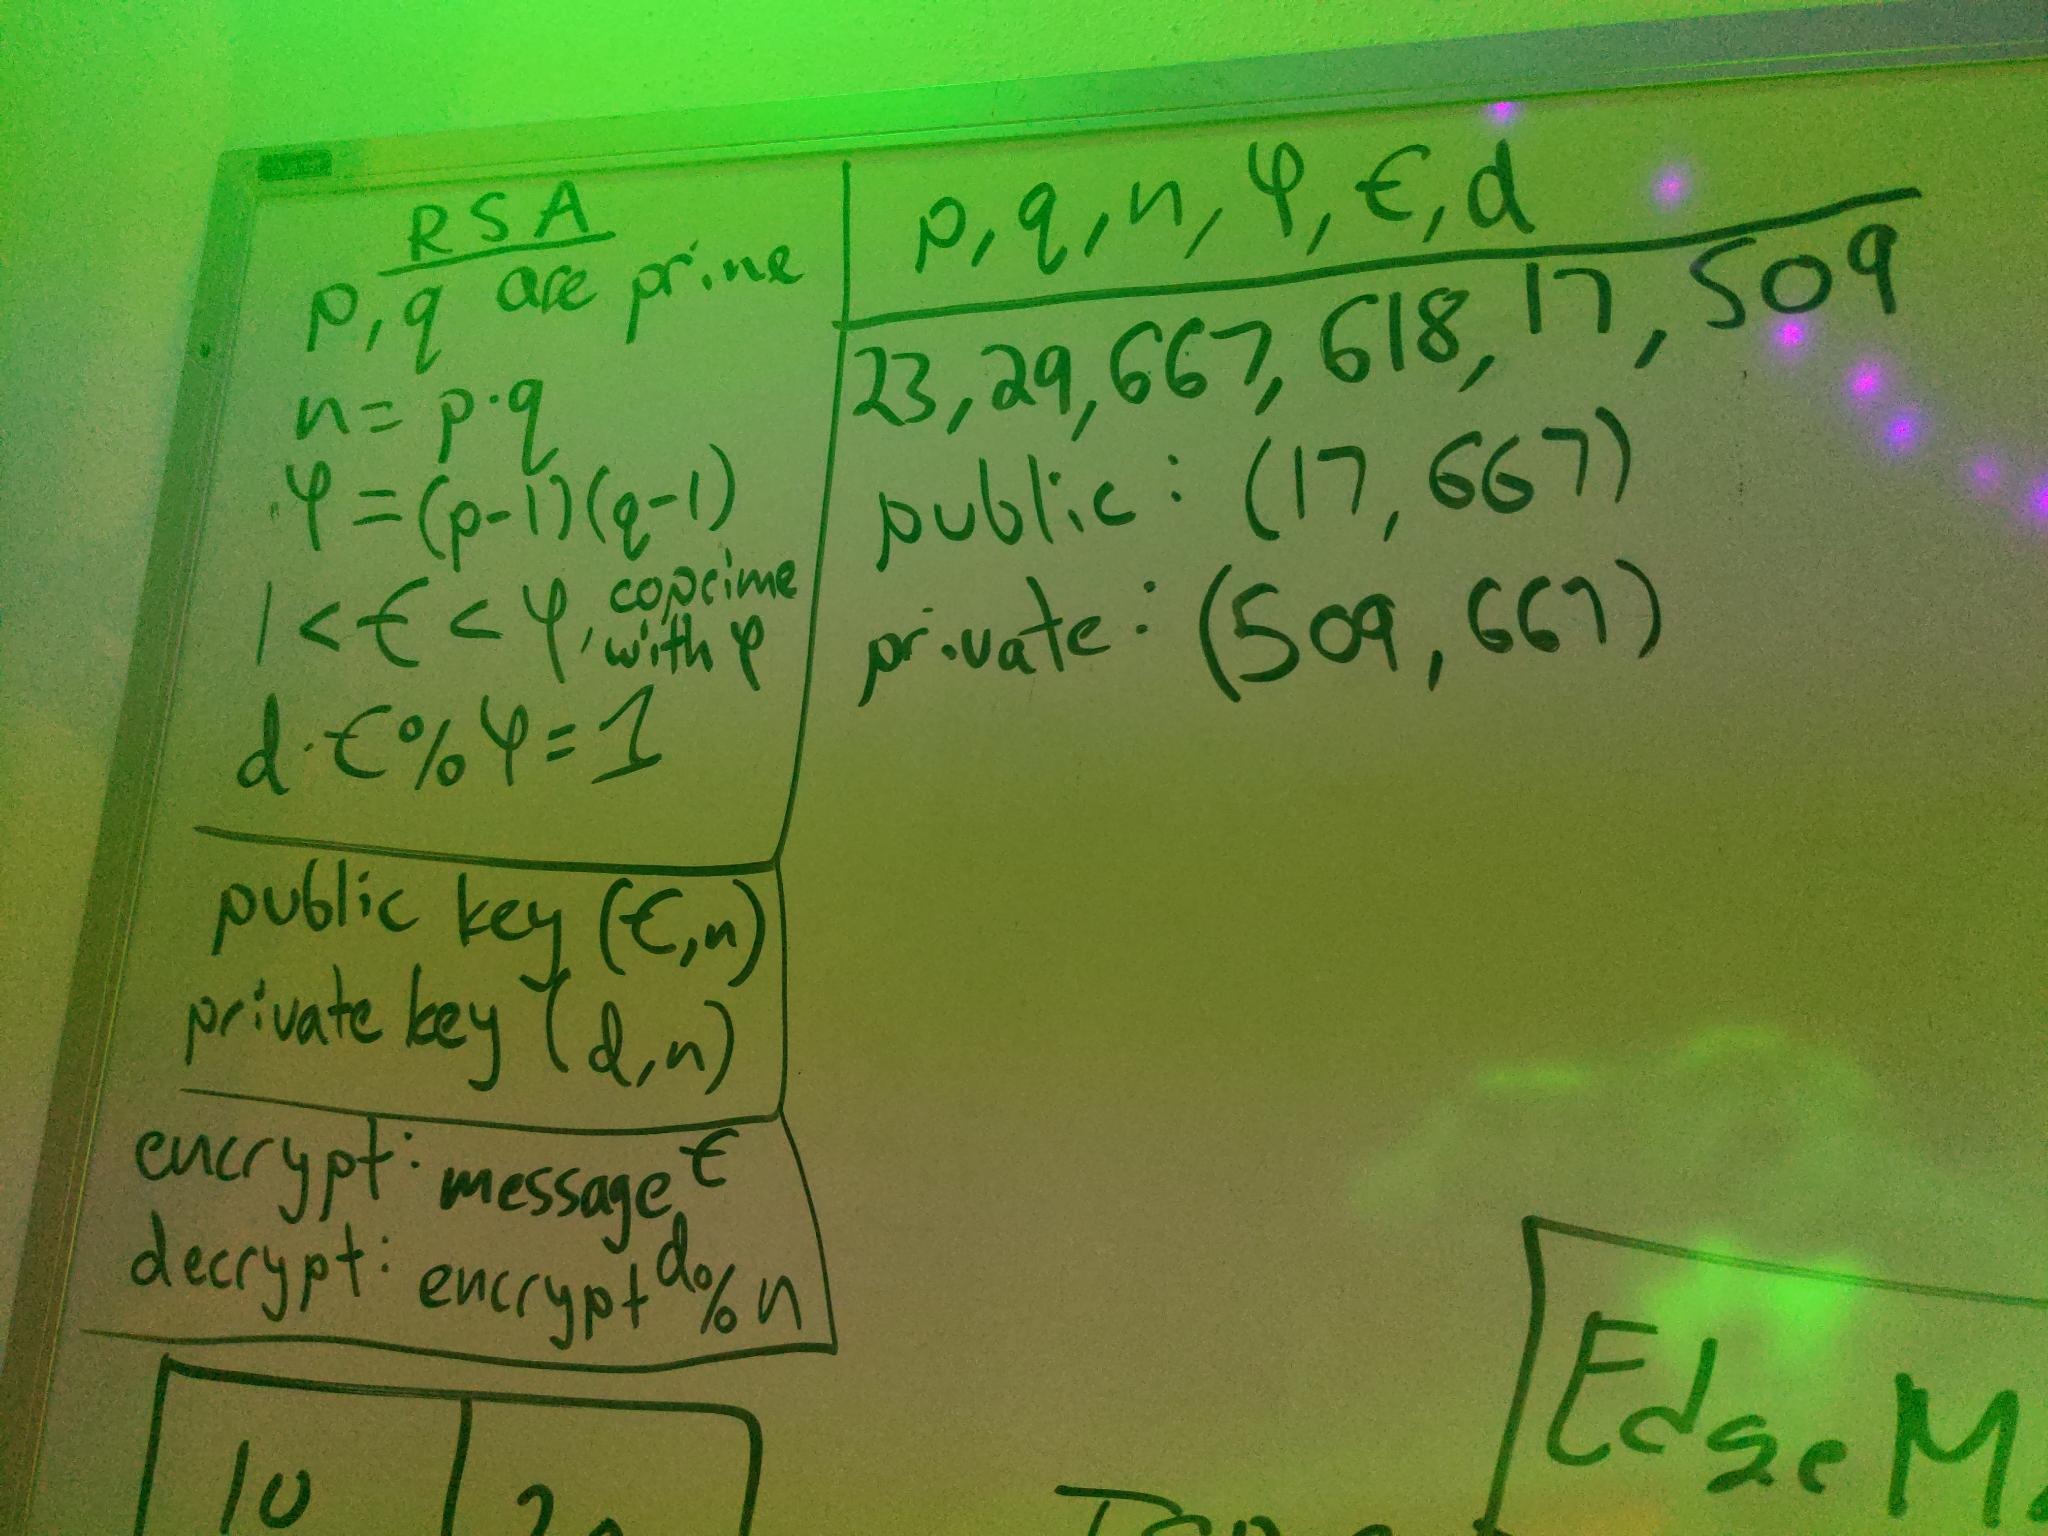 RSA
p,q are prime
n = p·q
φ = (p-1)(q-1)
1 < ϵ < φ, coprime
with φ
d·ϵ%φ=1
public key (ϵ,n)
private key (d,n)
encrypt: message^ϵ
decrypt: encrypt^d%n
10
p, q, n, φ, ϵ, d
23, 29, 667, 618, 17, 509
public: (17, 667)
private: (509, 667)
Edge